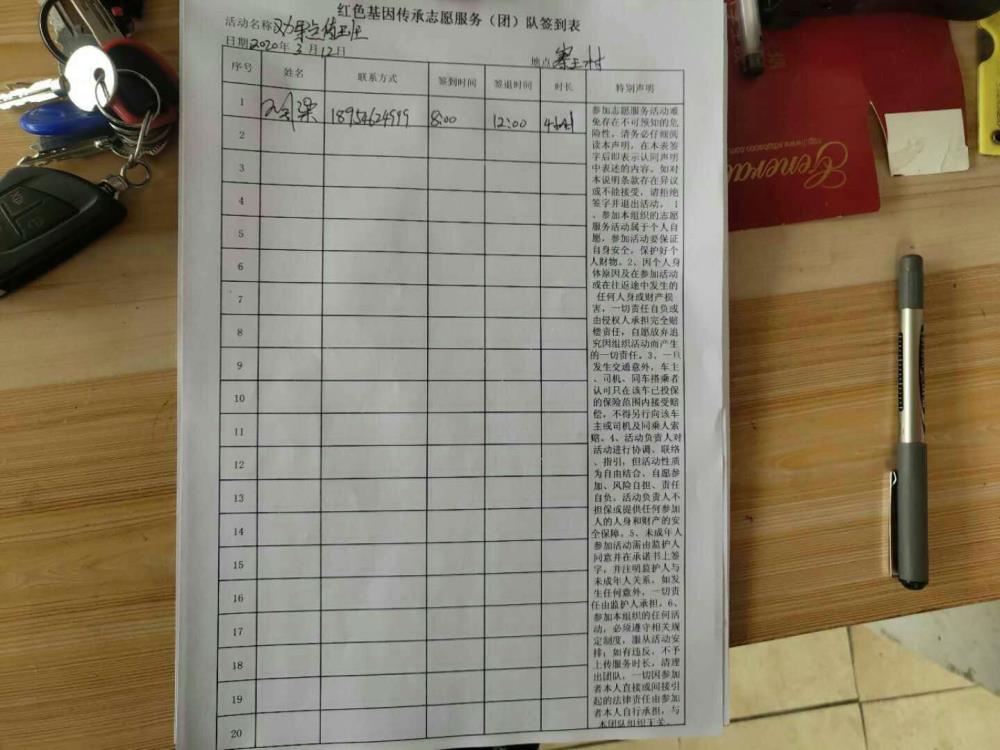 红色基因传承志愿服务（团）队签到表
活动名称
日期2020年3月12日
地点 寨王村
序号 姓名 联系方式 签到时间 签退时间 时长 特别声明
1 18954624999 8:00 12:00 4小时
2
3
4
5
6
7
8
9
10
11
12
13
14
15
16
17
18
19
20
参加志愿服务活动难
免存在不可预知的危
险性，请务必仔细阅
读本声明，在本表签
字后即表示认同声明
中表述的内容。如对
本说明条款存在异议
或不能接受，请拒绝
签字并退出活动。 1
、参加本组织的志愿
服务活动属于个人自
愿，参加活动要保证
自身安全，保护好个
人财物。2、因个人身
体原因及在参加活动
或在往返途中发生的
任何人身或财产损
害，一切责任自负或
由侵权人承担完全赔
偿责任，自愿放弃追
究因组织活动而产生
的一切责任。3、一旦
发生交通意外，车主
、司机、同车搭乘者
认可只在该车已投保
的保险范围内接受赔
偿，不得另行向该车
主或司机及同乘人索
赔。4、活动负责人对
活动进行协调、联络
、指引，但活动性质
为自由结合、自愿参
加、风险自担、责任
自负。活动负责人不
担保或提供任何参加
人的人身和财产的安
全保障。5、未成年人
参加活动需由监护人
同意并在承诺书上签
字，并注明监护人与
未成年人关系，如发
生任何意外，一切责
任由监护人承担。6、
参加本组织的任何活
动，必须遵守相关规
定制度，服从活动安
排；如有违反，不予
上传服务时长，清理
出团队，一切因参加
者本人直接或间接引
起的法律责任由参加
者本人自行承担，与
本团队组织无关。